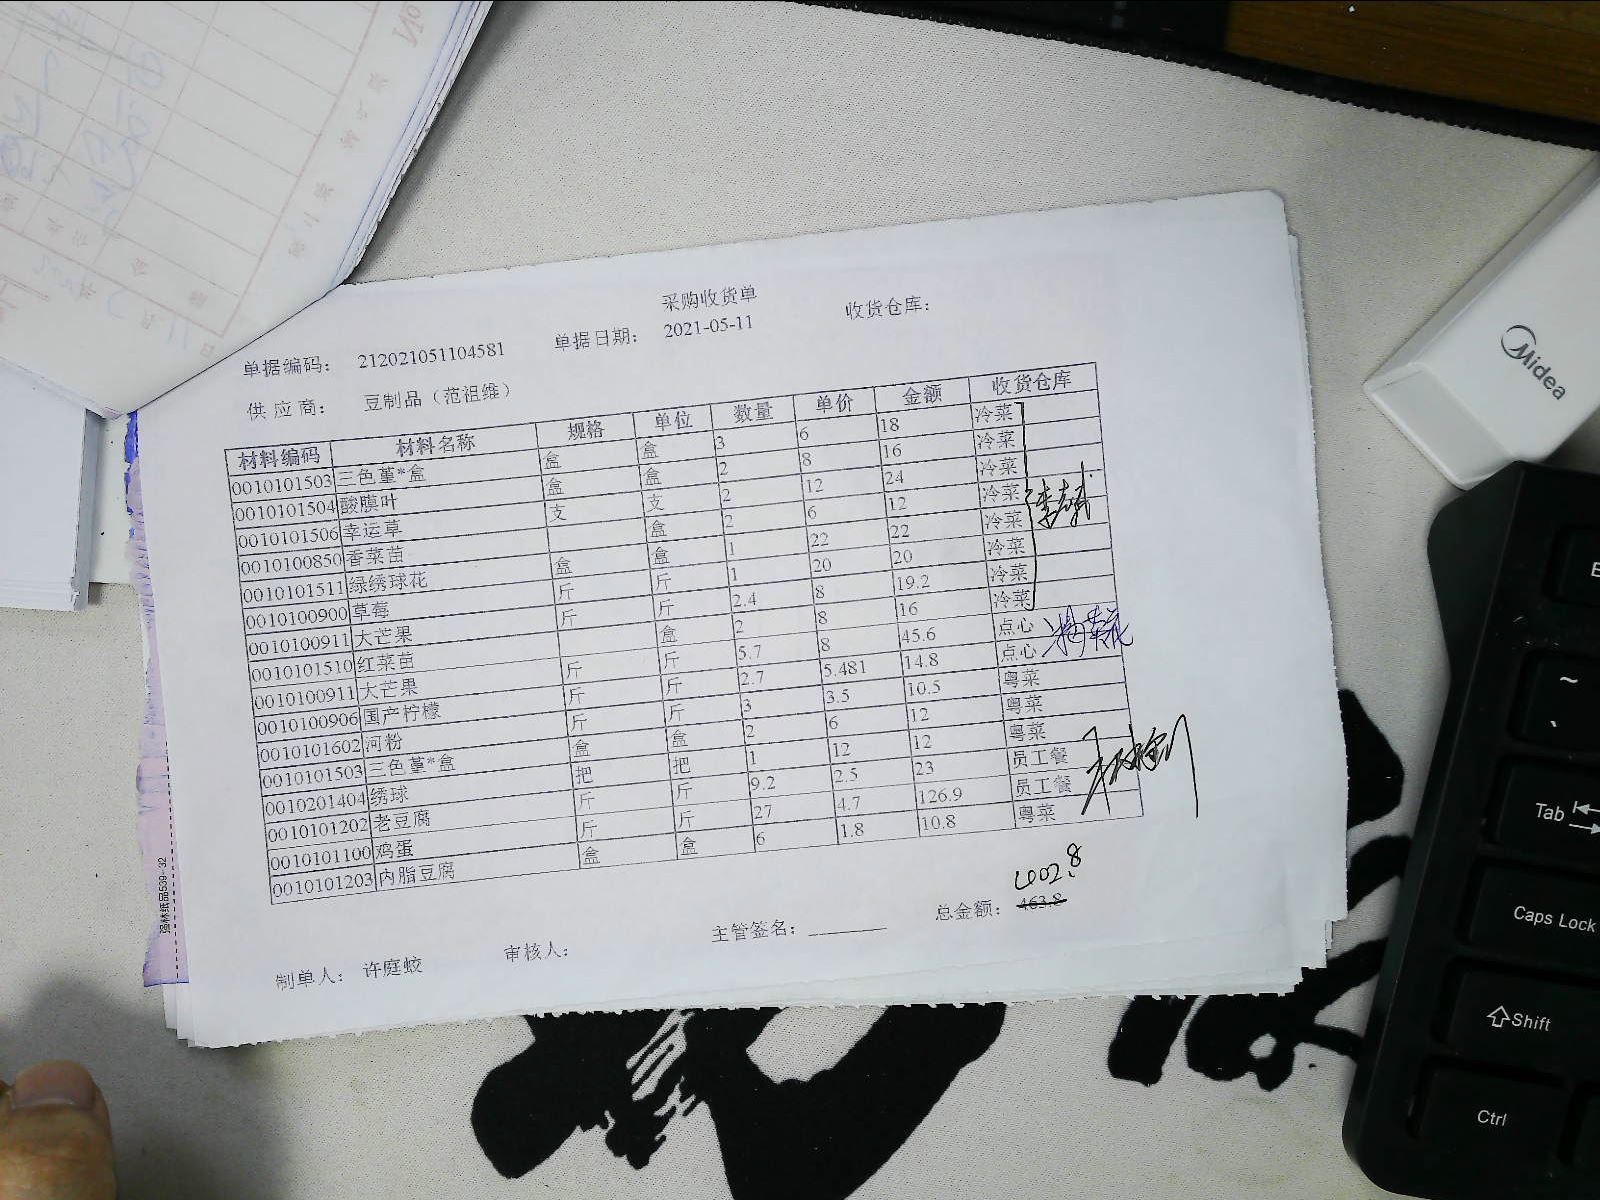 采购收货单
单据编码： 212021051104581 单据日期： 2021-05-11 收货仓库：
供应商： 豆制品（范祖维）
材料编码 材料名称 规格 单位 数量 单价 金额 收货仓库
0010101503 三色堇*盒 盒 盒 3 6 18 冷菜
0010101504 酸膜叶 盒 盒 2 8 16 冷菜
0010101506 幸运草 支 支 2 12 24 冷菜
0010100850 香菜苗 盒 2 6 12 冷菜
0010101511 绿绣球花 盒 盒 1 22 22 冷菜
0010100900 草莓 斤 斤 1 20 20 冷菜
0010100911 大芒果 斤 斤 2.4 8 19.2 冷菜
0010101510 红菜苗 盒 2 8 16 冷菜
0010100911 大芒果 斤 斤 5.7 8 45.6 点心
0010100906 国产柠檬 斤 斤 2.7 5.481 14.8 点心
0010101602 河粉 斤 斤 3 3.5 10.5 粤菜
0010101503 三色堇*盒 盒 盒 2 6 12 粤菜
0010201404 绣球 把 把 1 12 12 粤菜
0010101202 老豆腐 斤 斤 9.2 2.5 23 员工餐
0010101100 鸡蛋 斤 斤 27 4.7 126.9 员工餐
0010101203 内脂豆腐 盒 盒 6 1.8 10.8 粤菜
402.8
总金额： 463.8
制单人： 许庭蛟 审核人： 主管签名：
强林纸品539-32
Midea
Tab
Caps Lock
Shift
Ctrl